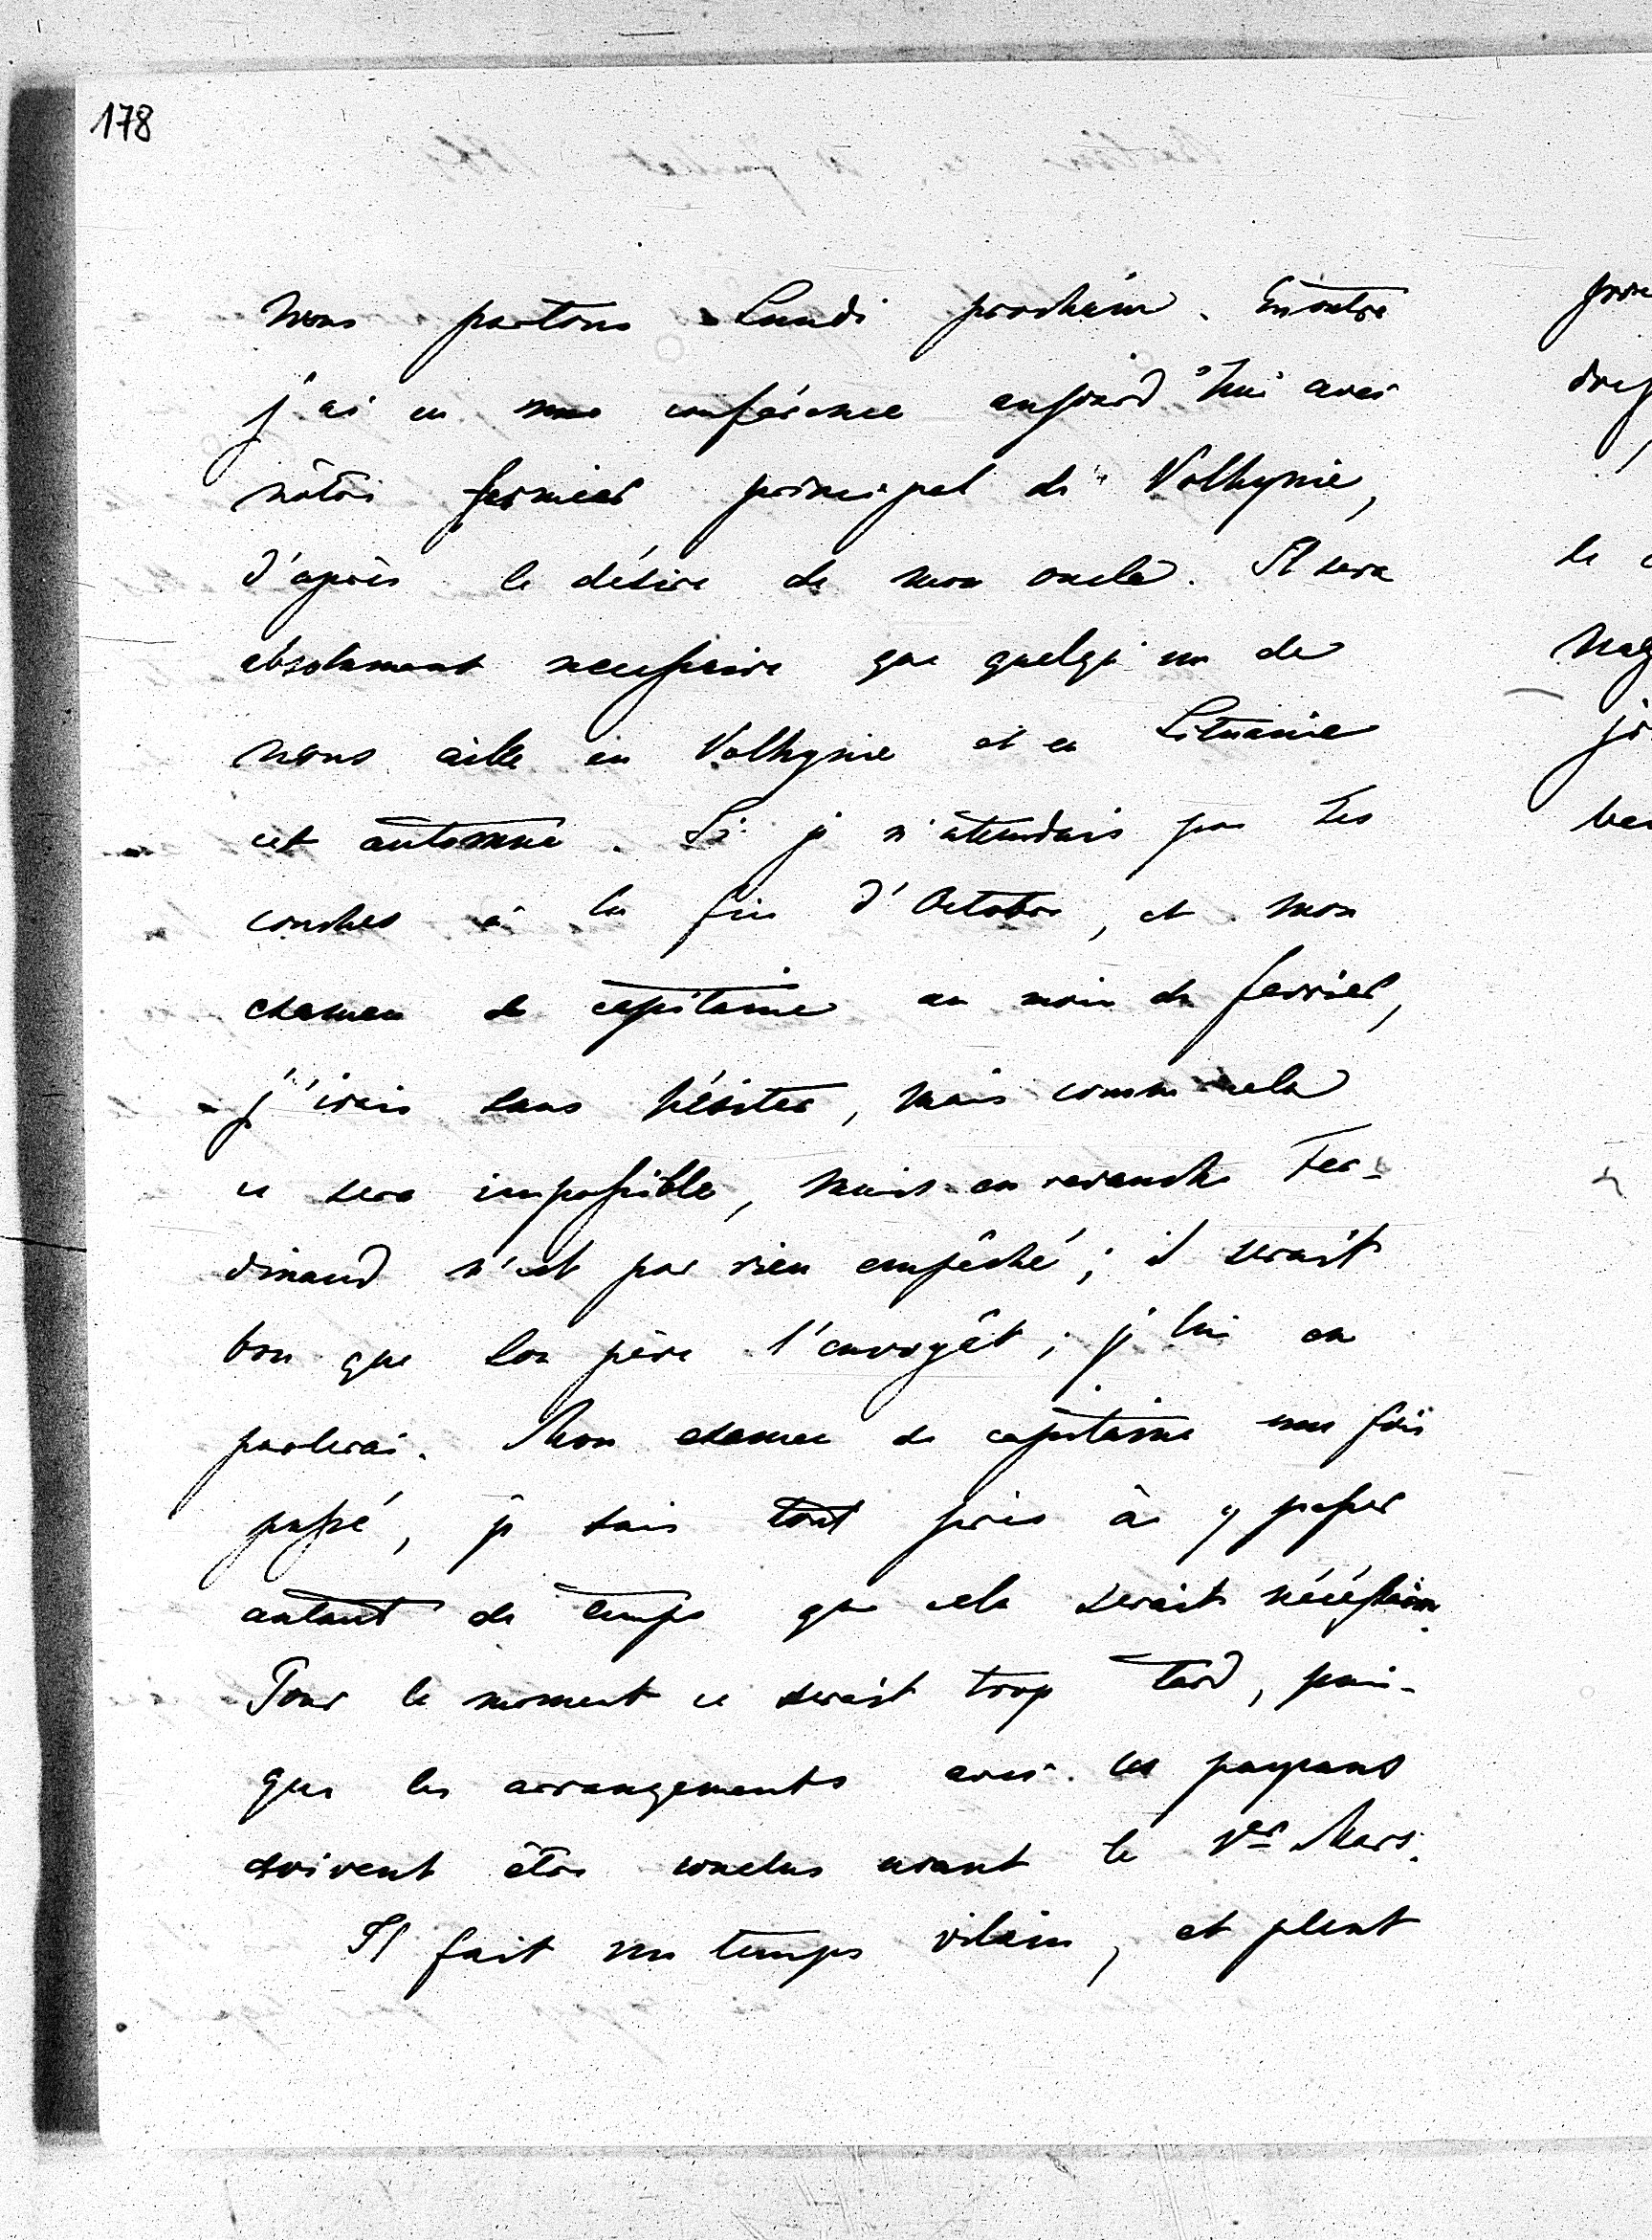 178
Nous partons Lundi prochain. En outre
j'ai eu une conférence aujourd'hui avec
nôtre fermier principal de Volhynie,
d'après le désire de mon oncle. Il sera
absolument necessaire que quelqu'un de
nous aille en Volhynie et en Lituanie
cet automne. Si je n'attendais pas tes
couches à la fin d'Octobre, et mon
examen de capitaine au mois de fevrier,
j'irais sans hésiter, mais comme cela
ce sera impossible, mais en revanche Fer-
dinand n'est par rien empêché; il serait
bon que son père l'envoyât; je lui en
parlerai. Mon examen de capitaine une fois
passé, je suis tout près à y passer
autant de temps que cela serait nécéssaire.
Pour le moment ce serait trop tard, puis-
que les arrangements avec les paysans
doivent être conclus avant le 1er Mars.
Il fait un temps vilain, et pleut